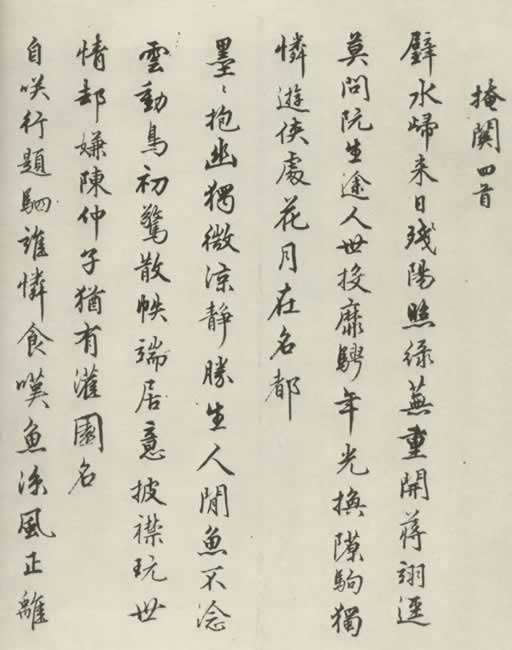 掩関四首
璧水歸来日残陽照緑蕪重開蔣詡逕
莫問阮生途人世投靡騁年光換隙駒獨
憐遊侠處花月在名都
墨〻抱幽獨微涼靜勝生人閒魚不淰
雲動鳥初驚散帙端居意披襟玩世
情却嫌陳仲子猶有灌園名
自咲行題駟誰憐食嘆魚涼風正離